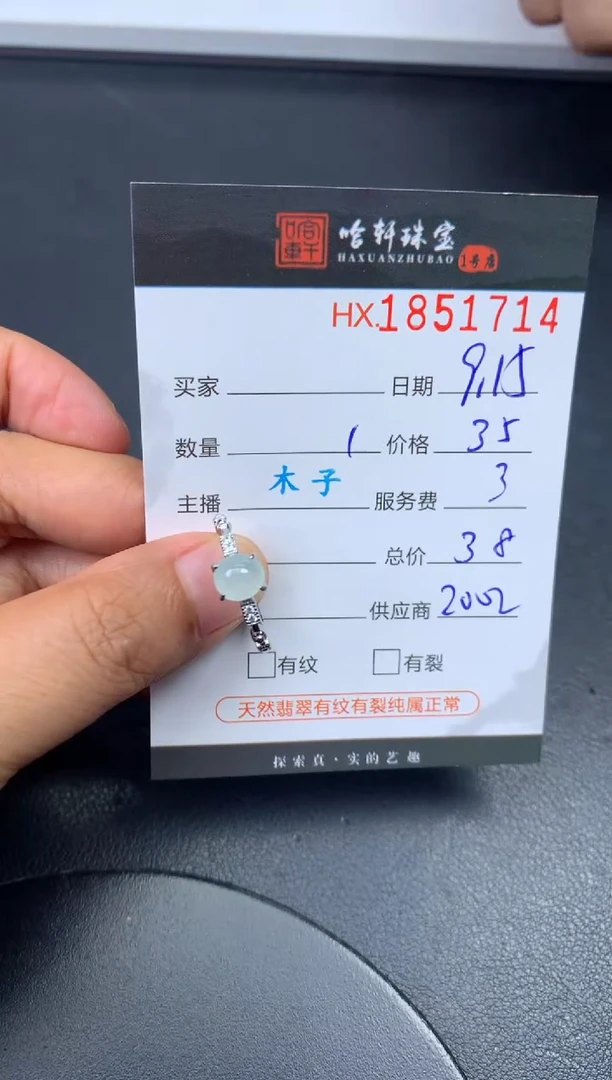 哈轩珠宝
HAXUANZHUBAO 1号店
HX.1851714
买家 日期 9.15
数量 1 价格 35
主播 木子 服务费 3
总价 38
供应商 2002
有纹 有裂
天然翡翠有纹有裂纯属正常
探索真、实的艺趣